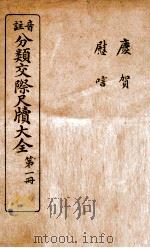 慶賀
慰唁
音註
分類交際尺牘大全
第一冊